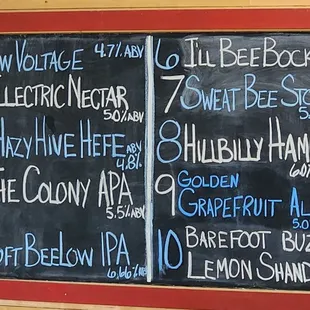 W VOLTAGE 4.7% ABV
LLECTRIC NECTAR
5.0% ABV
HAZY HIVE HEFE ABV
4.8%
THE COLONY APA
5.5% ABV
OFT BEELOW IPA
6.66% ABV
6 I'LL BEEBOCK
7 SWEAT BEE STO
8 HILLBILLY HAM
9 GOLDEN
GRAPEFRUIT AL
5.0
10 BAREFOOT BUZ
LEMON SHAND